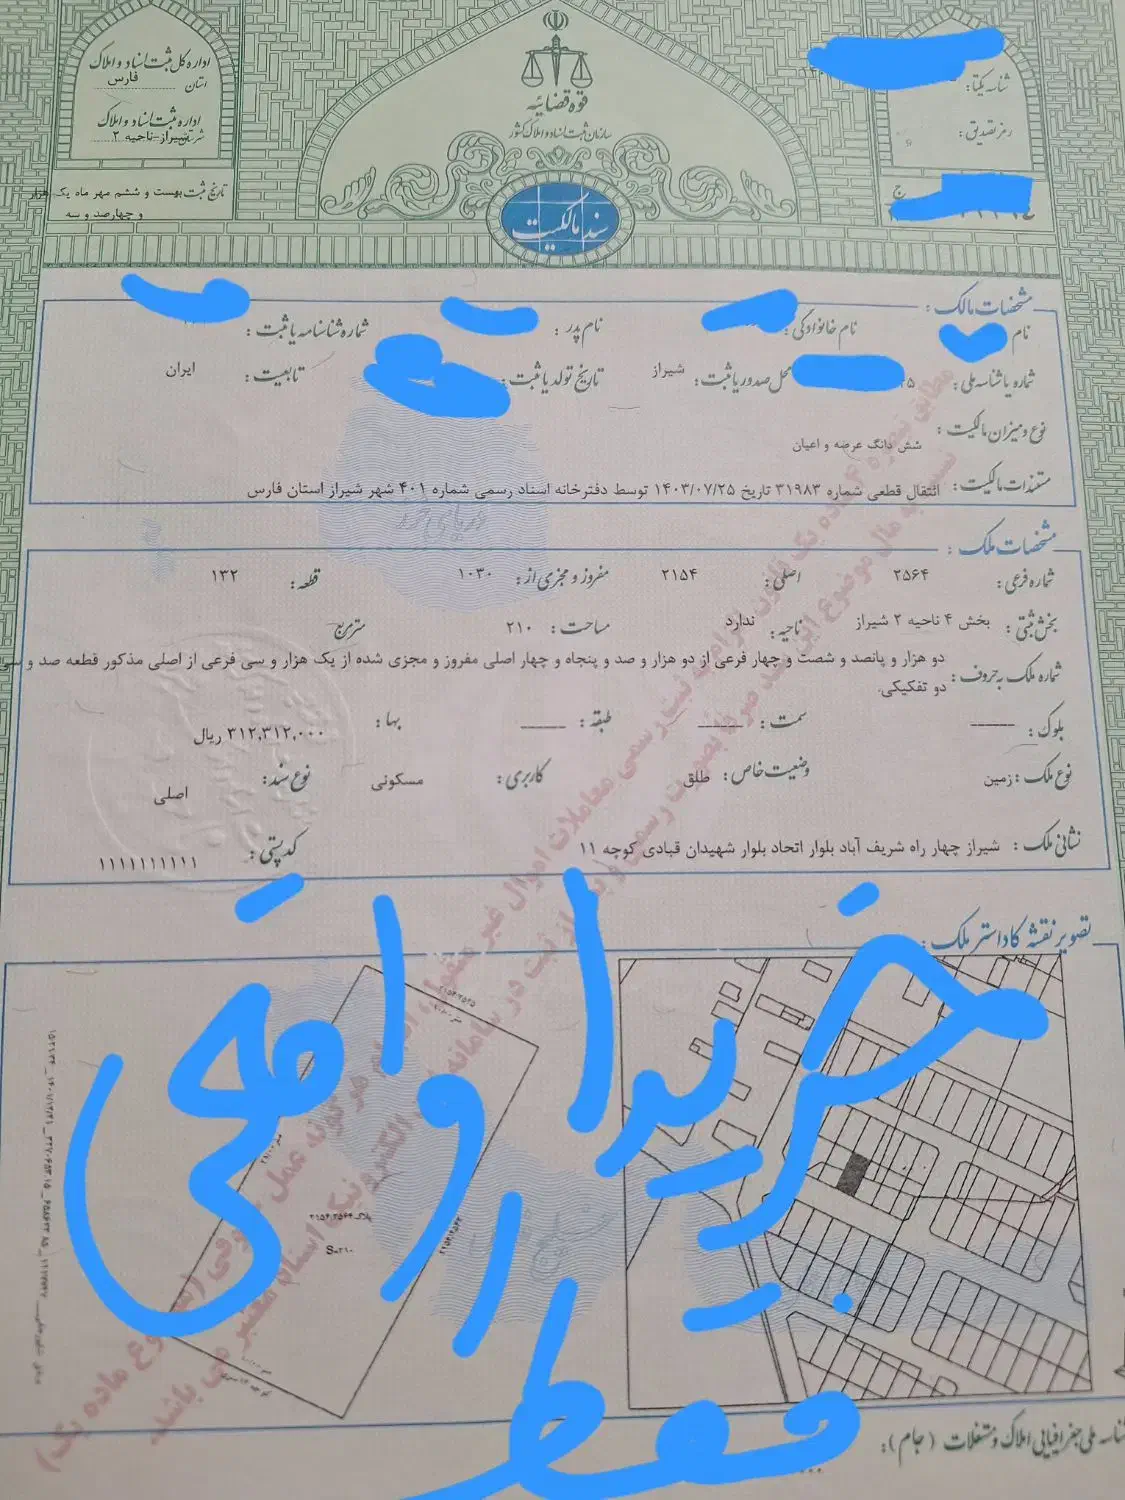 اداره کل ثبت اسناد و املاک
استان فارس
اداره ثبت اسناد و املاک
شهرستان شیراز-ناحیه ۲
تاریخ ثبت بیست و ششم مهر ماه یک هزار
و چهارصد و سه
قوه قضائیه
سازمان ثبت اسناد و املاک کشور
سند مالکیت
شناسه یکتا:
رمز تصدیق:
ج
مشخصات مالک:
نام
نام خانوادگی:
نام پدر:
شماره شناسنامه یا ثبت:
شماره یا شناسه ملی:
محل صدور یا ثبت: شیراز
تاریخ تولد یا ثبت:
تابعیت: ایران
نوع و میزان مالکیت: شش دانگ عرصه و اعیان
مستندات مالکیت: انتقال قطعی شماره ۳۱۹۸۳ تاریخ ۱۴۰۳/۰۷/۲۵ توسط دفترخانه اسناد رسمی شماره ۴۰۱ شهر شیراز استان فارس
مشخصات ملک:
شماره فرعی: ۲۵۶۴ اصلی: ۲۱۵۴ مفروز و مجزی از: ۱۰۳۰ قطعه: ۱۳۲
بخش ثبتی: بخش ۴ ناحیه ۲ شیراز ناحیه: ندارد مساحت: ۲۱۰ مترمربع
شماره ملک به حروف: دو هزار و پانصد و شصت و چهار فرعی از دو هزار و صد و پنجاه و چهار اصلی مفروز و مجزی شده از یک هزار و سی فرعی از اصلی مذکور قطعه صد و سی
دو تفکیکی.
بلوک: سمت: طبقه: بها: ۳۱۲,۳۱۲,۰۰۰ ریال
نوع ملک: زمین وضعیت خاص: طلق کاربری: مسکونی نوع سند: اصلی
نشانی ملک: شیراز چهار راه شریف آباد بلوار اتحاد بلوار شهیدان قبادی کوچه ۱۱ کدپستی: ۱۱۱۱۱۱۱۱۱۱
تصویر نقشه کاداستر ملک:
خریدار واقعی
فقط
پلاک ۲۱۵۴/۲۵۶۴
S=۲۱۰
شناسه ملی جغرافیایی املاک و مستغلات (جام):